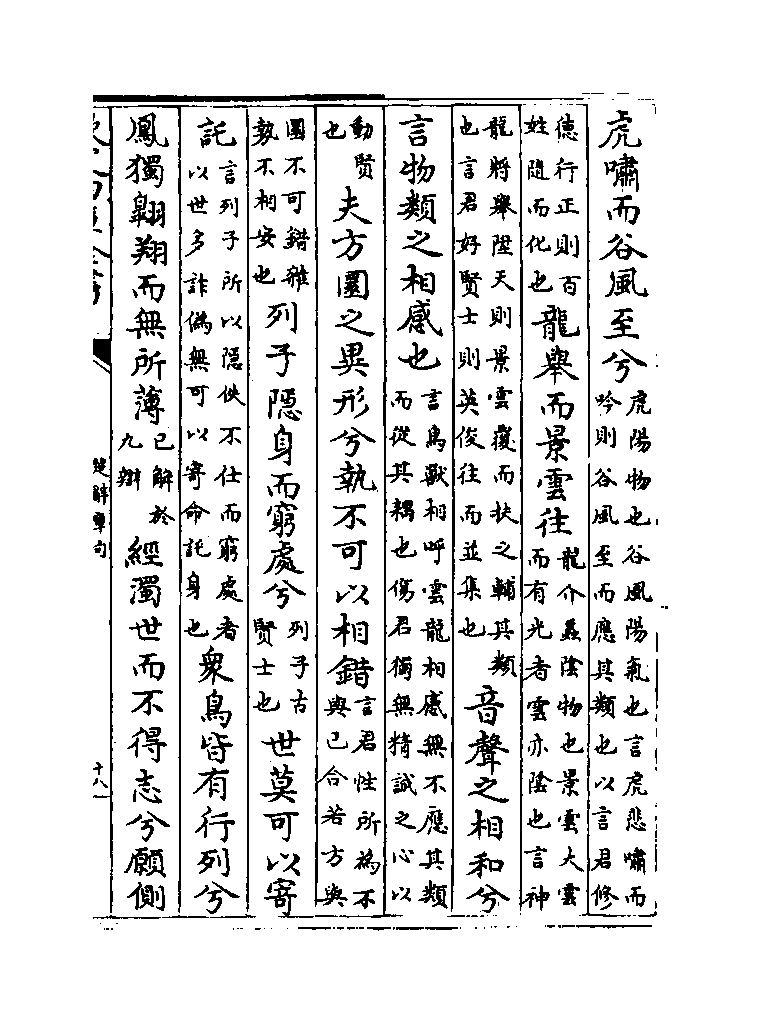 虎嘯而谷風至兮虎陽物也谷風陽氣也言虎悲嘯而吟則谷風至而應其類也以言君修
德行正則百姓隨而化也龍舉而景雲往龍介蟲陰物也景雲大雲而有光者雲亦陰也言神
龍將舉陞天則景雲覆而扶之輔其類也言君好賢士則英俊往而並集也音聲之相和兮
言物類之相感也言鳥獸相呼雲龍相感無不應其類而從其耦也傷君獨無精誠之心以
動賢也夫方圜之異形兮埶不可以相錯言君性所為不與己合若方與
圜不可錯雜埶不相安也列子隱身而窮處兮列子古賢士也世莫可以寄
託言列子所以隱佚不仕而窮處者以世多詐偽無可以寄命託身也衆鳥皆有行列兮
鳳獨翺翔而無所薄已解於九辯經濁世而不得志兮願側
楚辭章句
十八